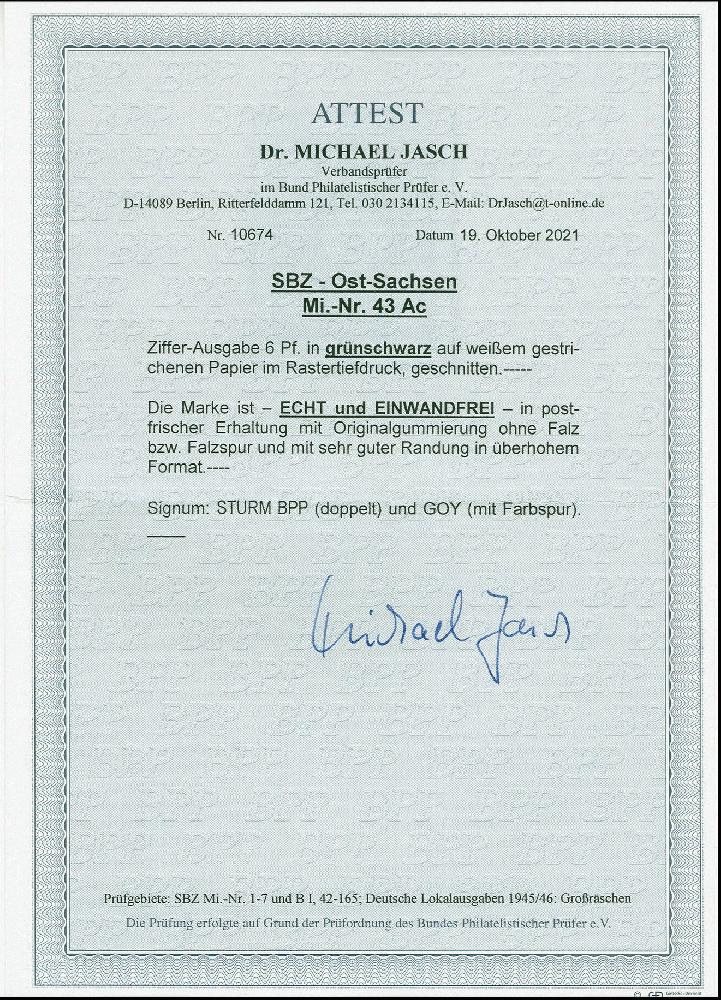 ATTEST
Dr. MICHAEL JASCH
Verbandsprüfer
im Bund Philatelistischer Prüfer e. V.
D-14089 Berlin, Ritterfelddamm 121, Tel. 030 2134115, E-Mail: DrJasch@t-online.de
Nr. 10674 Datum 19. Oktober 2021
SBZ - Ost-Sachsen
Mi.-Nr. 43 Ac
Ziffer-Ausgabe 6 Pf. in grünschwarz auf weißem gestri-
chenen Papier im Rastertiefdruck, geschnitten.-----
Die Marke ist – ECHT und EINWANDFREI – in post-
frischer Erhaltung mit Originalgummierung ohne Falz
bzw. Falzspur und mit sehr guter Randung in überhohem
Format.----
Signum: STURM BPP (doppelt) und GOY (mit Farbspur).
Michael Jasch
Prüfgebiete: SBZ Mi.-Nr. 1-7 und B I, 42-165; Deutsche Lokalausgaben 1945/46: Großräschen
Die Prüfung erfolgte auf Grund der Prüfordnung des Bundes Philatelistischer Prüfer e.V.